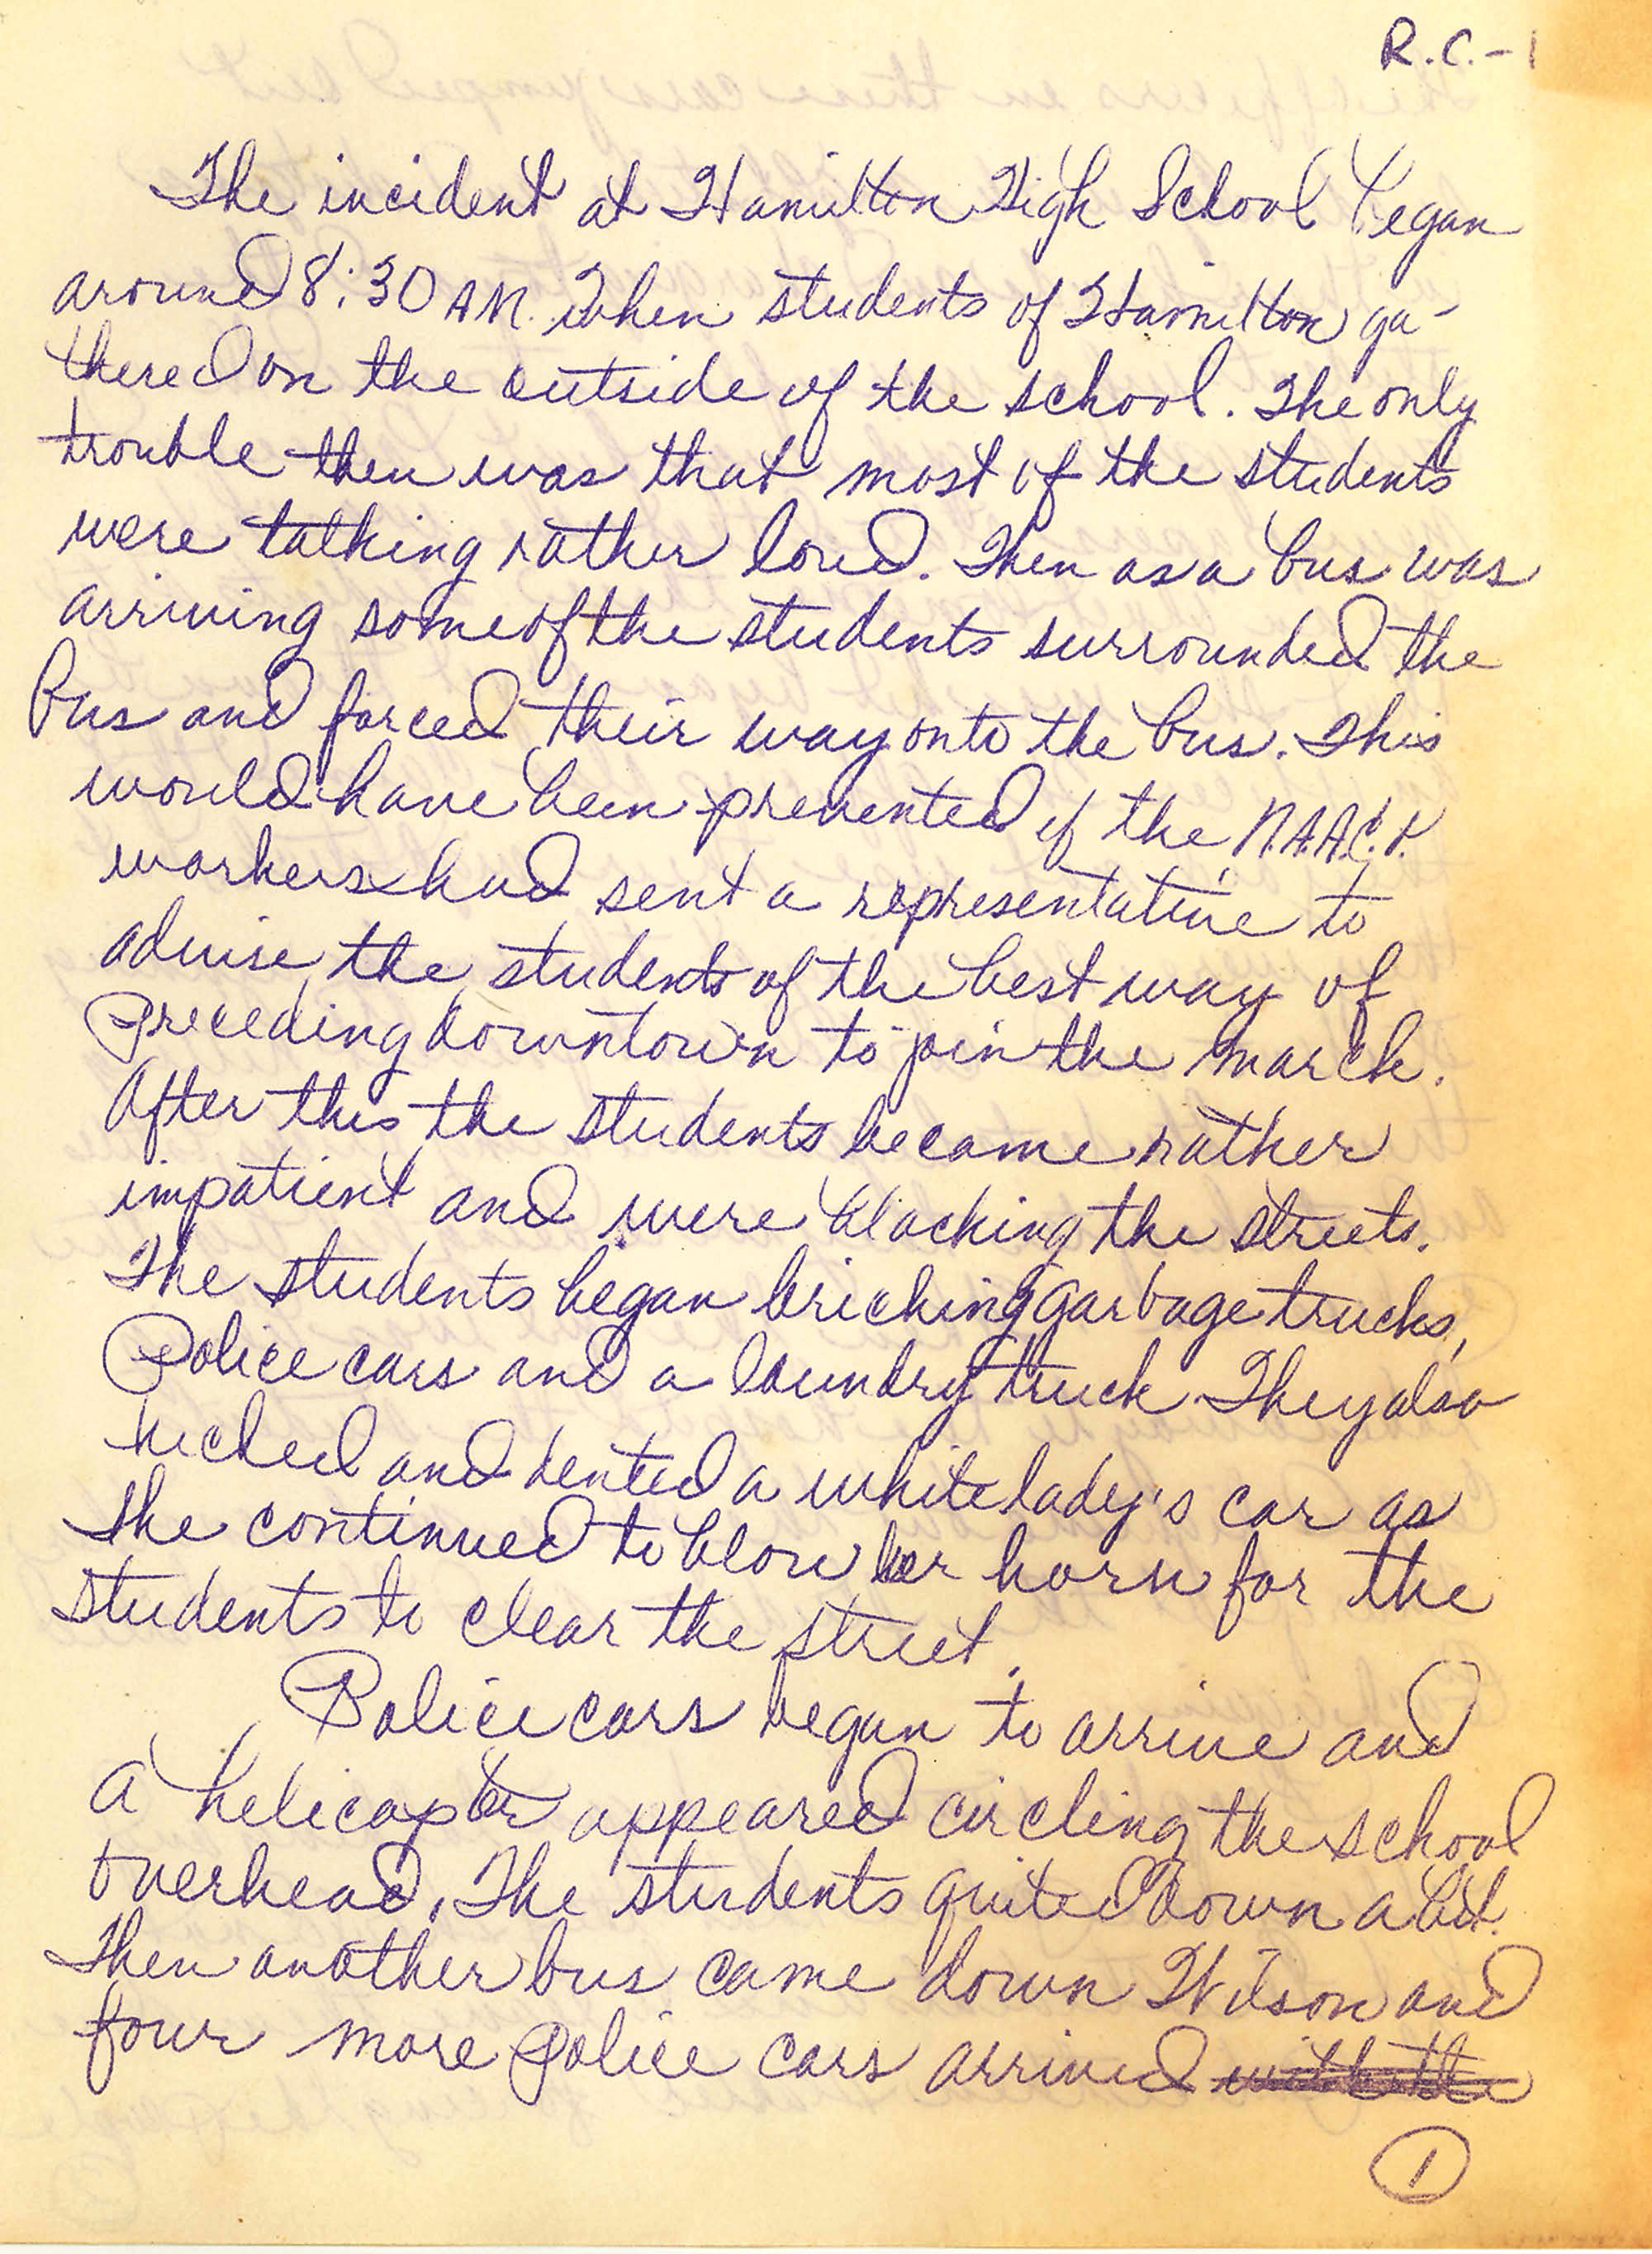 R.C.-1
The incident at Hamilton High School began
around 8:30 AM. When students of Hamilton ga-
thered on the outside of the school. The only
trouble then was that most of the students
were talking rather loud. Then as a bus was
arriving some of the students surrounded the
bus and forced their way onto the bus. This
would have been prevented if the N.A.A.C.P.
workers had sent a representative to
advise the students of the best way of
preceding downtown to join the march.
After this the students became rather
impatient and were blocking the streets.
The students began bricking garbage trucks,
Police cars and a laundry truck. They also
kicked and dented a white lady's car as
she continued to blow her horn for the
students to clear the street.
Police cars began to arrive and
a helicopter appeared circling the school
overhead. The students quited down a bit.
Then another bus came down Wilson and
four more police cars arrived with the
1